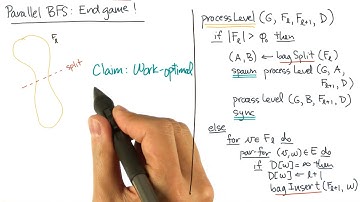 Parallel BFS: Endgame!
Fℓ
split
Claim: Work-optimal
processLevel (G, Fℓ, Fℓ+1, D)
if |Fℓ| > φ then
(A, B) ← bagSplit (Fℓ)
spawn processLevel (G, A,
Fℓ+1, D)
process Level (G, B, Fℓ+1, D)
sync
else
for v ∈ Fℓ do
par-for (v, w) ∈ E do
if D[w] = ∞ then
D[w] ← ℓ+1
bagInsert (Fℓ+1, w)